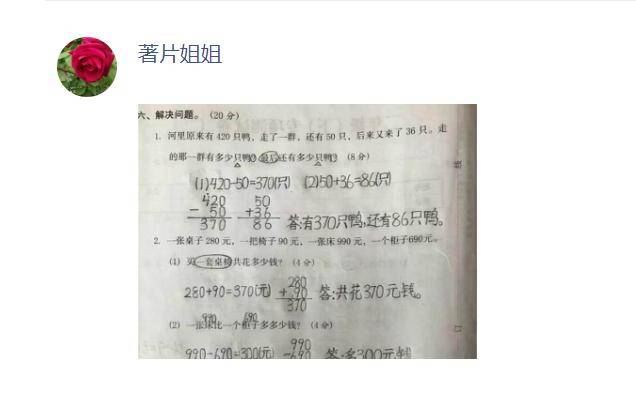 著片姐姐
六、解决问题。(20分)
1. 河里原来有420只鸭，走了一群，还有50只，后来又来了36只。走
的那一群有多少只鸭？最后还有多少只鸭？(8分)
(1)420-50=370(只) (2)50+36=86(只)
420 50
- 50 +36
370 86 答:有370只鸭,还有86只鸭。
2. 一张桌子280元，一把椅子90元，一张床990元，一个柜子690元。
(1) 买一套桌椅共花多少钱？(4分)
280+90=370(元) 280 答:共花370元钱。
+ 90
370
990 690
(2) 一张床比一个柜子多多少钱？(4分)
990-690=300(元) 990 答:多300元钱
-690